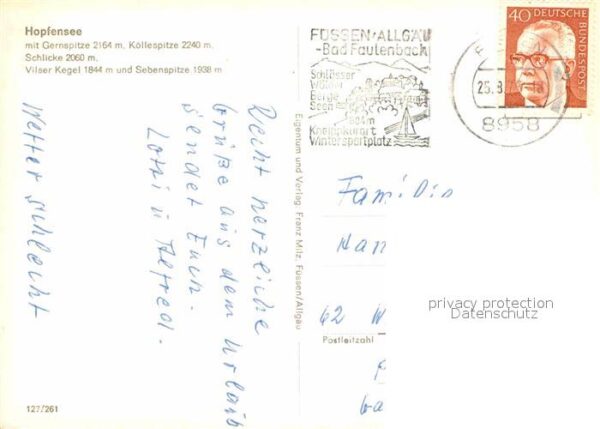 Hopfensee
mit Gernspitze 2164 m, Köllespitze 2240 m,
Schlicke 2060 m,
Vilser Kegel 1844 m und Sebenspitze 1938 m
Wetter schlecht
Recht herzliche
Grüße aus dem Urlaub
sendet Euch.
Lotti u Alfred.
127/261
Eigentum und Verlag: Franz Milz, Füssen/Allgäu
FÜSSEN/ALLGÄU
-Bad Faulenbach
Schlösser
Wälder
Berge
Seen
804m
Kneippkurort
Wintersportplatz
8958
40 DEUTSCHE BUNDESPOST
Familie
62 W
Postleitzahl
privacy protection
Datenschutz